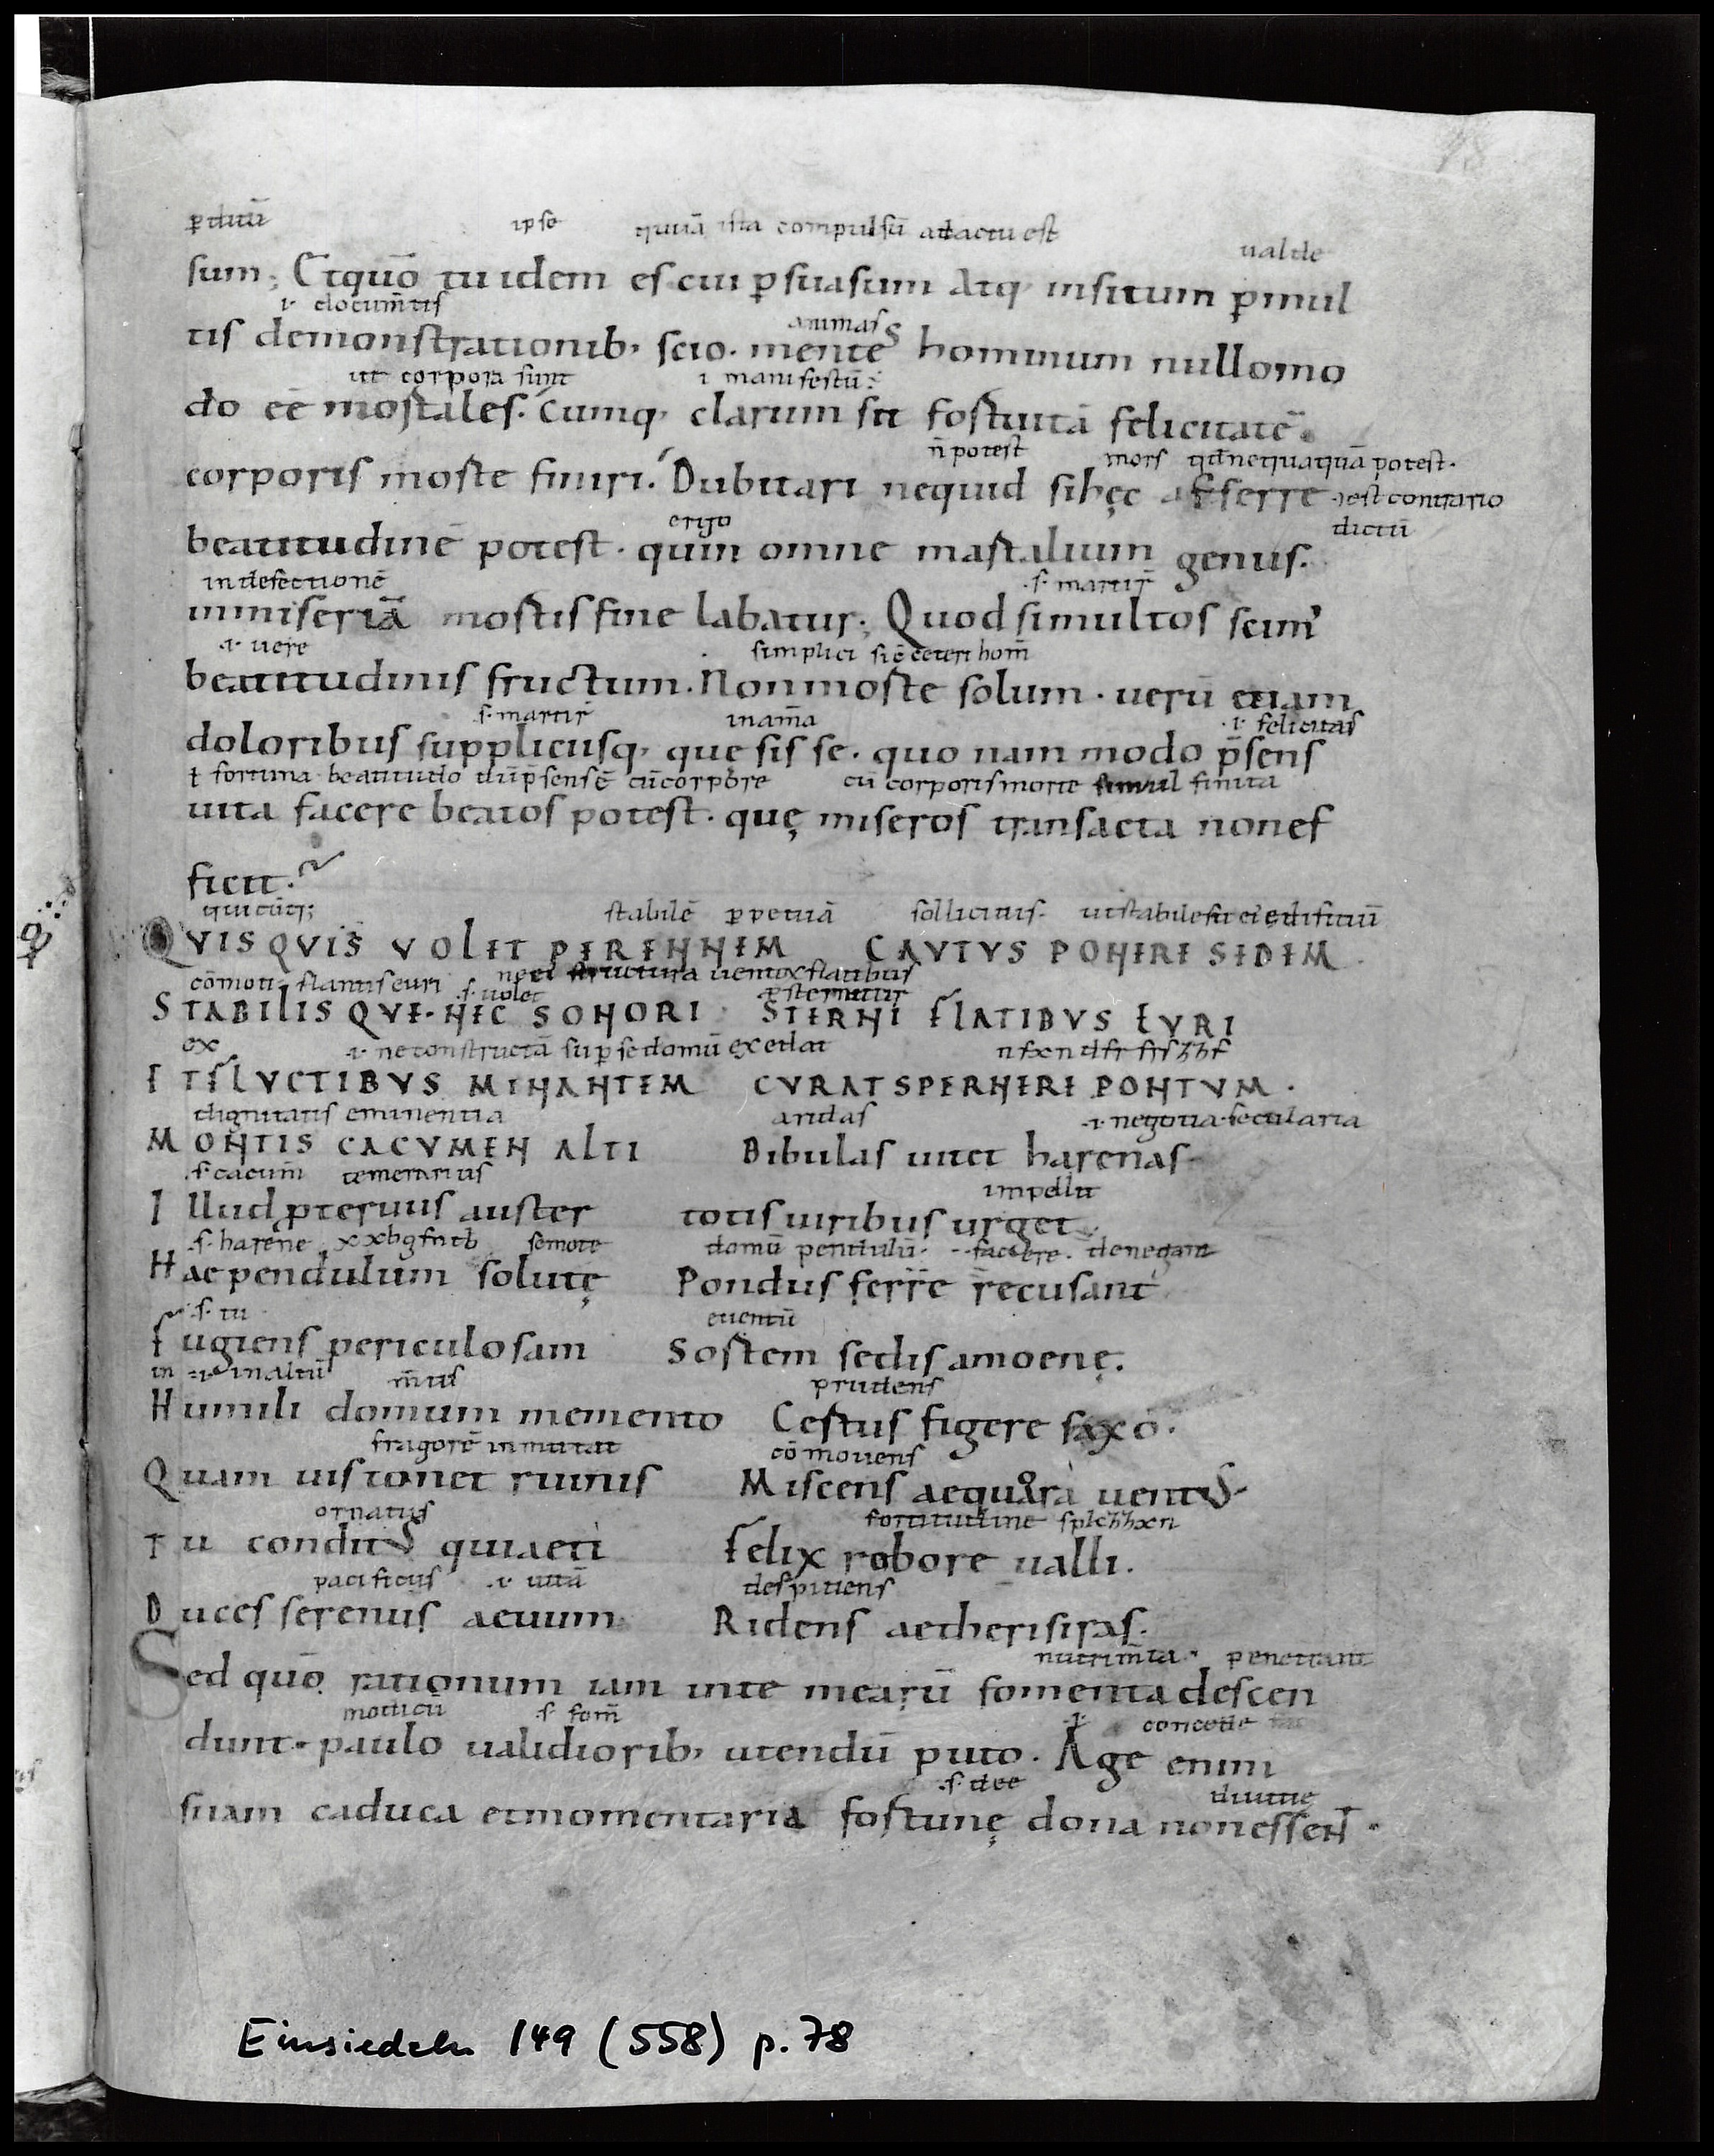 ꝑduū ipse quiuā ista compulsū adactu est ualde
sum; Et quō tu idem es cui ꝑsuasum Atq; insitum ꝑmul
.i. documtis animas
tis demonstrationib; scio. mentes hominum nullomo
ut corpora sunt .i. manifestū
do eē mortales. Cumq; clarum sit fortuitā felicitatē
n̄ potest mors qd̄ nequaquā potest.
corporis morte finiri. Dubitari nequid si hęc afferre
est contrario
ergo dictū
beatitudinē potest. quin omne mortalium genus.
in defectionē .s. martir̄
inmiseriā mortis fine labatur; Quod si multos scim'
.i. uere simplici sic̄ ceteri hom̄
beatitudinis fructum. Non morte solum. uerū etiam
.s. martir̄ in am̄a .i. felicitas
doloribus suppliciisq; quęsisse. quo nam modo p̄sens
ł fortuna beatitudo dū p̄sens ē cū corpore cū corporis morte simul finita
uita facere beatos potest. quę miseros transacta non ef
ficit.
quicūq; stabilē ꝑpetuā sollicitus. ut stabile sit ei edificiū
QVISQVIS VOLET PERENNEM CAVTVS PONERE SEDEM.
cōmoti flantis euri .s. uolet ne ei structura uentox flatibus ꝓsternatur
STABILISQVE. NEC SONORI STERNI FLATIBVS EVRI
ex .i. ne constructā sup se domū excedat nfxndfr frſƶhf
ET FLVCTIBVS MINANTEM CVRAT SPERNERE PONTVM.
dignitatis eminentia aridas .i. negotia secularia
MONTIS CACVMEN ALTI Bibulas uitet harenas
.s. cacum̄ temerarius impellit
Illud ꝓteruus auster totis uiribus urget.
.s. harene xxbgfntb semote domū pendulū. facere. denegant
Hae pendulum solutę Pondus ferre recusant
.s. tu euentū
Fugiens periculosam Sortem sedis amoenę.
in .i. in altū m̄tis prudens
Humili domum memento Certus figere saxo.
fragorē inmittat cōmouens
Quamuis tonet ruinis Miscens aequora uentus
ornatus fortitudine splchhxn
Tu conditus quiaeti Felix robore ualli.
pacificus .i. uitā despiciens
Duces serenus aeuum Ridens aetheris iras.
nutrim̄ta. penetrant
Sed quō rationum iam inte mearū fomenta descen
modicū .s. fom̄ .i. concede
dunt. paulo ualidiorib; utendū puto. Age enim
.s. dee diuitie
si iam caduca et momentaria fortunę dona non essent.
Einsiedeln 149 (558) p. 78